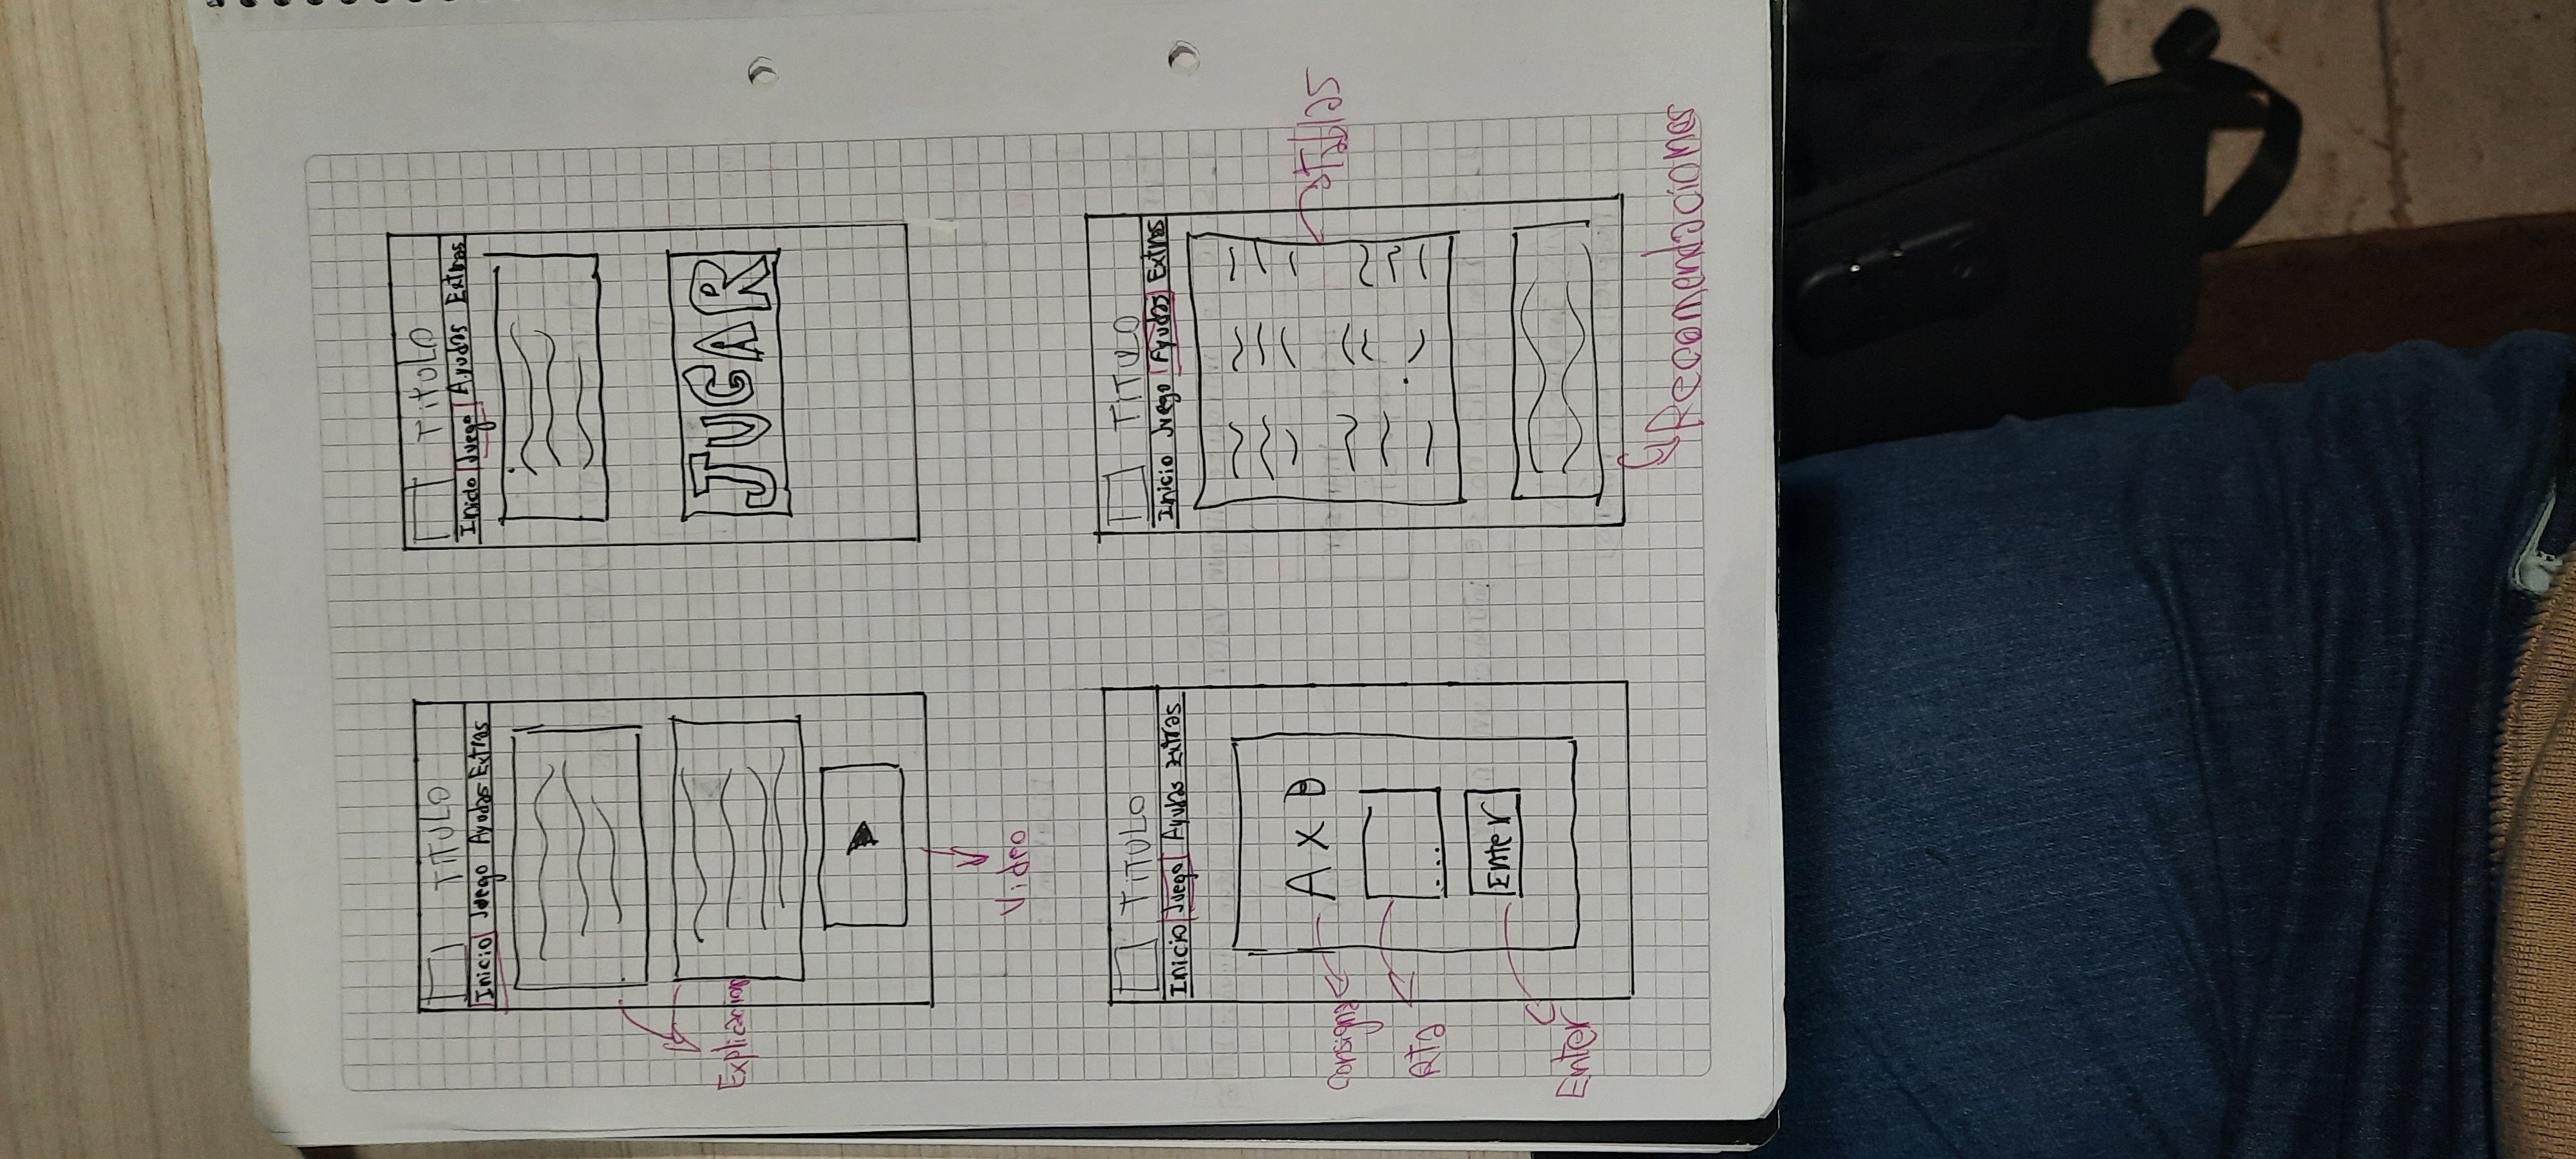 TITULO
Inicio Juego Ayudas Extras
Explicacion
Video
TITULO
Inicio Juego Ayudas Extras
JUGAR
TITULO
Inicio Juego Ayudas Extras
A x B
Consigna
Rta
Enter
Enter
TITULO
Inicio Juego Ayudas Extras
Tablas
Recomendaciones